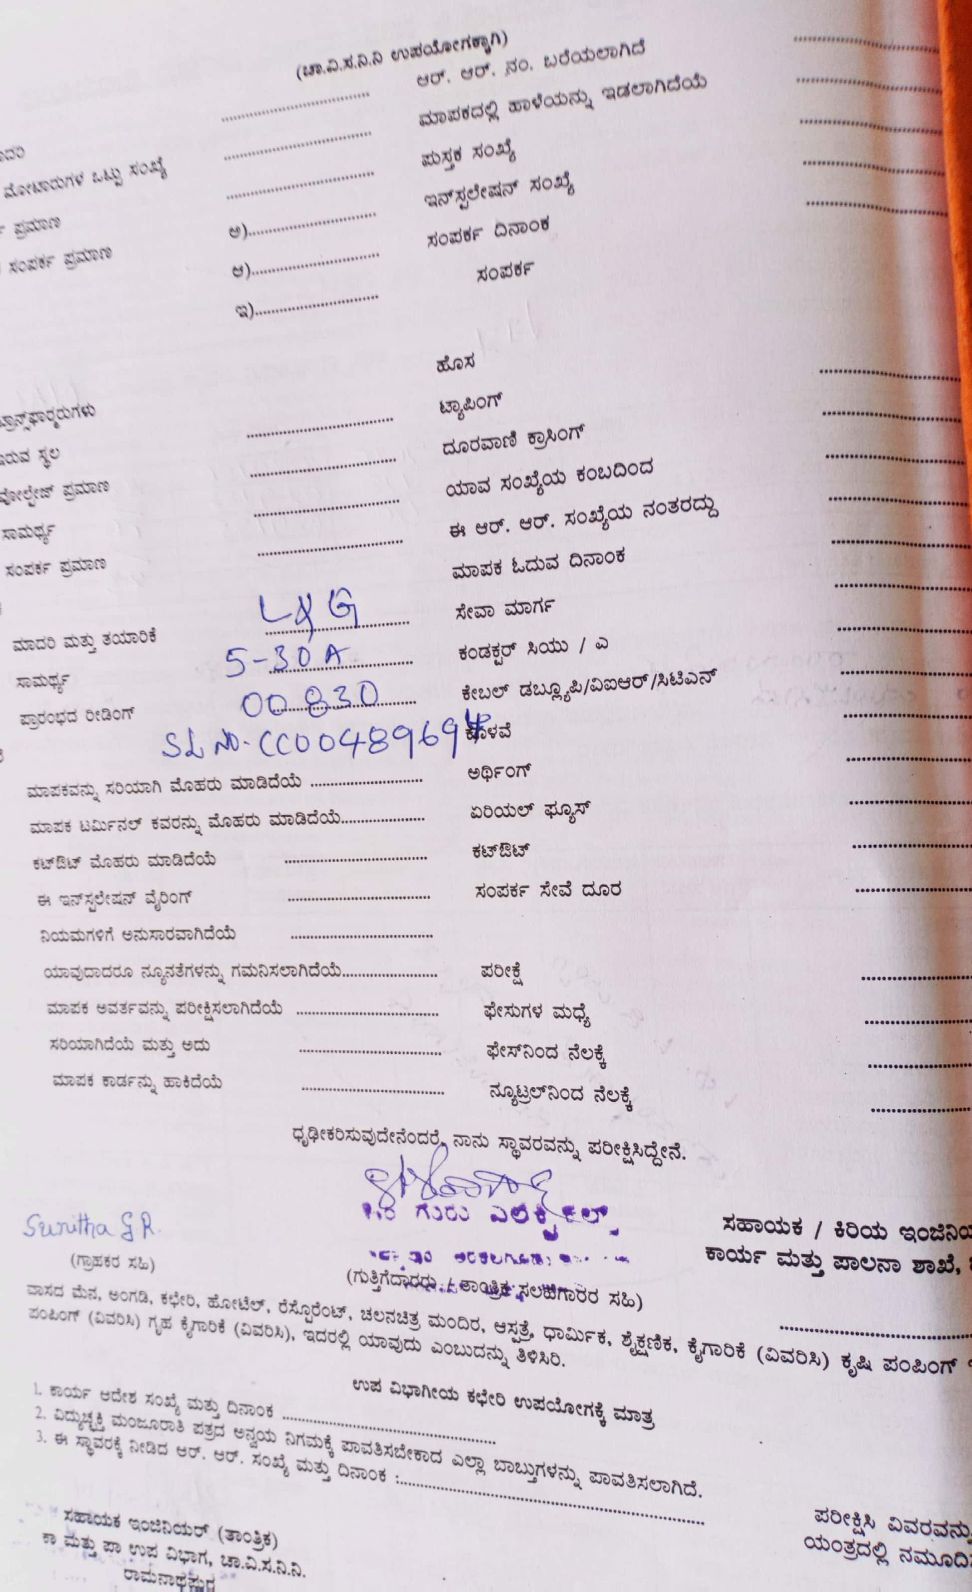 (ಚಾ.ವಿ.ಸ.ನಿ.ನಿ ಉಪಯೋಗಕ್ಕಾಗಿ)
ಆರ್. ಆರ್. ನಂ. ಬರೆಯಲಾಗಿದೆ
ಮಾಪಕದಲ್ಲಿ ಹಾಳೆಯನ್ನು ಇಡಲಾಗಿದೆಯೆ
ಮೋಟಾರುಗಳ ಒಟ್ಟು ಸಂಖ್ಯೆ
ಪುಸ್ತಕ ಸಂಖ್ಯೆ
ಪ್ರಮಾಣ ಅ)
ಇನ್‌ಸ್ಟಲೇಷನ್ ಸಂಖ್ಯೆ
ಸಂಪರ್ಕ ಪ್ರಮಾಣ ಆ)
ಸಂಪರ್ಕ ದಿನಾಂಕ
ಇ)
ಸಂಪರ್ಕ
ಹೊಸ
ಟ್ರಾನ್ಸ್‌ಫಾರ್ಮರುಗಳು
ಟ್ಯಾಪಿಂಗ್
ಇರುವ ಸ್ಥಲ
ದೂರವಾಣಿ ಕ್ರಾಸಿಂಗ್
ವೋಲ್ಟೇಜ್ ಪ್ರಮಾಣ
ಯಾವ ಸಂಖ್ಯೆಯ ಕಂಬದಿಂದ
ಸಾಮರ್ಥ್ಯ
ಈ ಆರ್. ಆರ್. ಸಂಖ್ಯೆಯ ನಂತರದ್ದು
ಸಂಪರ್ಕ ಪ್ರಮಾಣ
ಮಾಪಕ ಓದುವ ದಿನಾಂಕ
ಮಾದರಿ ಮತ್ತು ತಯಾರಿಕೆ L&G
ಸೇವಾ ಮಾರ್ಗ
ಸಾಮರ್ಥ್ಯ 5-30A
ಕಂಡಕ್ಟರ್ ಸಿಯು / ಎ
ಪ್ರಾರಂಭದ ರೀಡಿಂಗ್ 00830
ಕೇಬಲ್ ಡಬ್ಲ್ಯೂಪಿ/ವಿಐಆರ್/ಸಿಟಿಎನ್
SL NO. CC00489694
ಕೊಳವೆ
ಮಾಪಕವನ್ನು ಸರಿಯಾಗಿ ಮೊಹರು ಮಾಡಿದೆಯೆ
ಅರ್ಥಿಂಗ್
ಮಾಪಕ ಟರ್ಮಿನಲ್ ಕವರನ್ನು ಮೊಹರು ಮಾಡಿದೆಯೆ
ಏರಿಯಲ್ ಫ್ಯೂಸ್
ಕಟ್‌ಔಟ್ ಮೊಹರು ಮಾಡಿದೆಯೆ
ಕಟ್‌ಔಟ್
ಈ ಇನ್‌ಸ್ಟಲೇಷನ್ ವೈರಿಂಗ್
ಸಂಪರ್ಕ ಸೇವೆ ದೂರ
ನಿಯಮಗಳಿಗೆ ಅನುಸಾರವಾಗಿದೆಯೆ
ಯಾವುದಾದರೂ ನ್ಯೂನತೆಗಳನ್ನು ಗಮನಿಸಲಾಗಿದೆಯೆ
ಪರೀಕ್ಷೆ
ಮಾಪಕ ಅವರ್ತವನ್ನು ಪರೀಕ್ಷಿಸಲಾಗಿದೆಯೆ
ಫೇಸುಗಳ ಮಧ್ಯೆ
ಸರಿಯಾಗಿದೆಯೆ ಮತ್ತು ಅದು
ಫೇಸ್‌ನಿಂದ ನೆಲಕ್ಕೆ
ಮಾಪಕ ಕಾರ್ಡನ್ನು ಹಾಕಿದೆಯೆ
ನ್ಯೂಟ್ರಲ್‌ನಿಂದ ನೆಲಕ್ಕೆ
ಧೃಢೀಕರಿಸುವುದೇನೆಂದರೆ, ನಾನು ಸ್ಥಾವರವನ್ನು ಪರೀಕ್ಷಿಸಿದ್ದೇನೆ.
Sunitha G.R.
ಗುರು ಎಲೆಕ್ಟ್ರಿಕಲ್ಸ್
ಸಹಾಯಕ / ಕಿರಿಯ
ಕಾರ್ಯ ಮತ್ತು ಪಾಲನಾ ಶಾಖೆ,
(ಗ್ರಾಹಕರ ಸಹಿ)
(ಗುತ್ತಿಗೆದಾರರು / ತಾಂತ್ರಿಕ ಸಲಹೆಗಾರರ ಸಹಿ)
ವಾಸದ ಮೆನ, ಅಂಗಡಿ, ಕಛೇರಿ, ಹೋಟೆಲ್, ರೆಸ್ಟೊರೆಂಟ್, ಚಲನಚಿತ್ರ ಮಂದಿರ, ಆಸ್ಪತ್ರೆ, ಧಾರ್ಮಿಕ, ಶೈಕ್ಷಣಿಕ, ಕೈಗಾರಿಕೆ (ವಿವರಿಸಿ) ಕೃಷಿ ಪಂಪಿಂಗ್
ಪಂಪಿಂಗ್ (ವಿವರಿಸಿ) ಗೃಹ ಕೈಗಾರಿಕೆ (ವಿವರಿಸಿ), ಇದರಲ್ಲಿ ಯಾವುದು ಎಂಬುದನ್ನು ತಿಳಿಸಿರಿ.
ಉಪ ವಿಭಾಗೀಯ ಕಛೇರಿ ಉಪಯೋಗಕ್ಕೆ ಮಾತ್ರ
1. ಕಾರ್ಯ ಆದೇಶ ಸಂಖ್ಯೆ ಮತ್ತು ದಿನಾಂಕ
2. ವಿದ್ಯುಚ್ಛಕ್ತಿ ಮಂಜೂರಾತಿ ಪತ್ರದ ಅನ್ವಯ ನಿಗಮಕ್ಕೆ ಪಾವತಿಸಬೇಕಾದ ಎಲ್ಲಾ ಬಾಬ್ತುಗಳನ್ನು ಪಾವತಿಸಲಾಗಿದೆ.
3. ಈ ಸ್ಥಾವರಕ್ಕೆ ನೀಡಿದ ಆರ್. ಆರ್. ಸಂಖ್ಯೆ ಮತ್ತು ದಿನಾಂಕ :
ಸಹಾಯಕ ಇಂಜಿನಿಯರ್ (ತಾಂತ್ರಿಕ)
ಕಾ ಮತ್ತು ಪಾ ಉಪ ವಿಭಾಗ, ಚಾ.ವಿ.ಸ.ನಿ.ನಿ.
ರಾಮನಾಥಪುರ
ಪರೀಕ್ಷಿಸಿ ವಿವರವನ್ನು
ಯಂತ್ರದಲ್ಲಿ